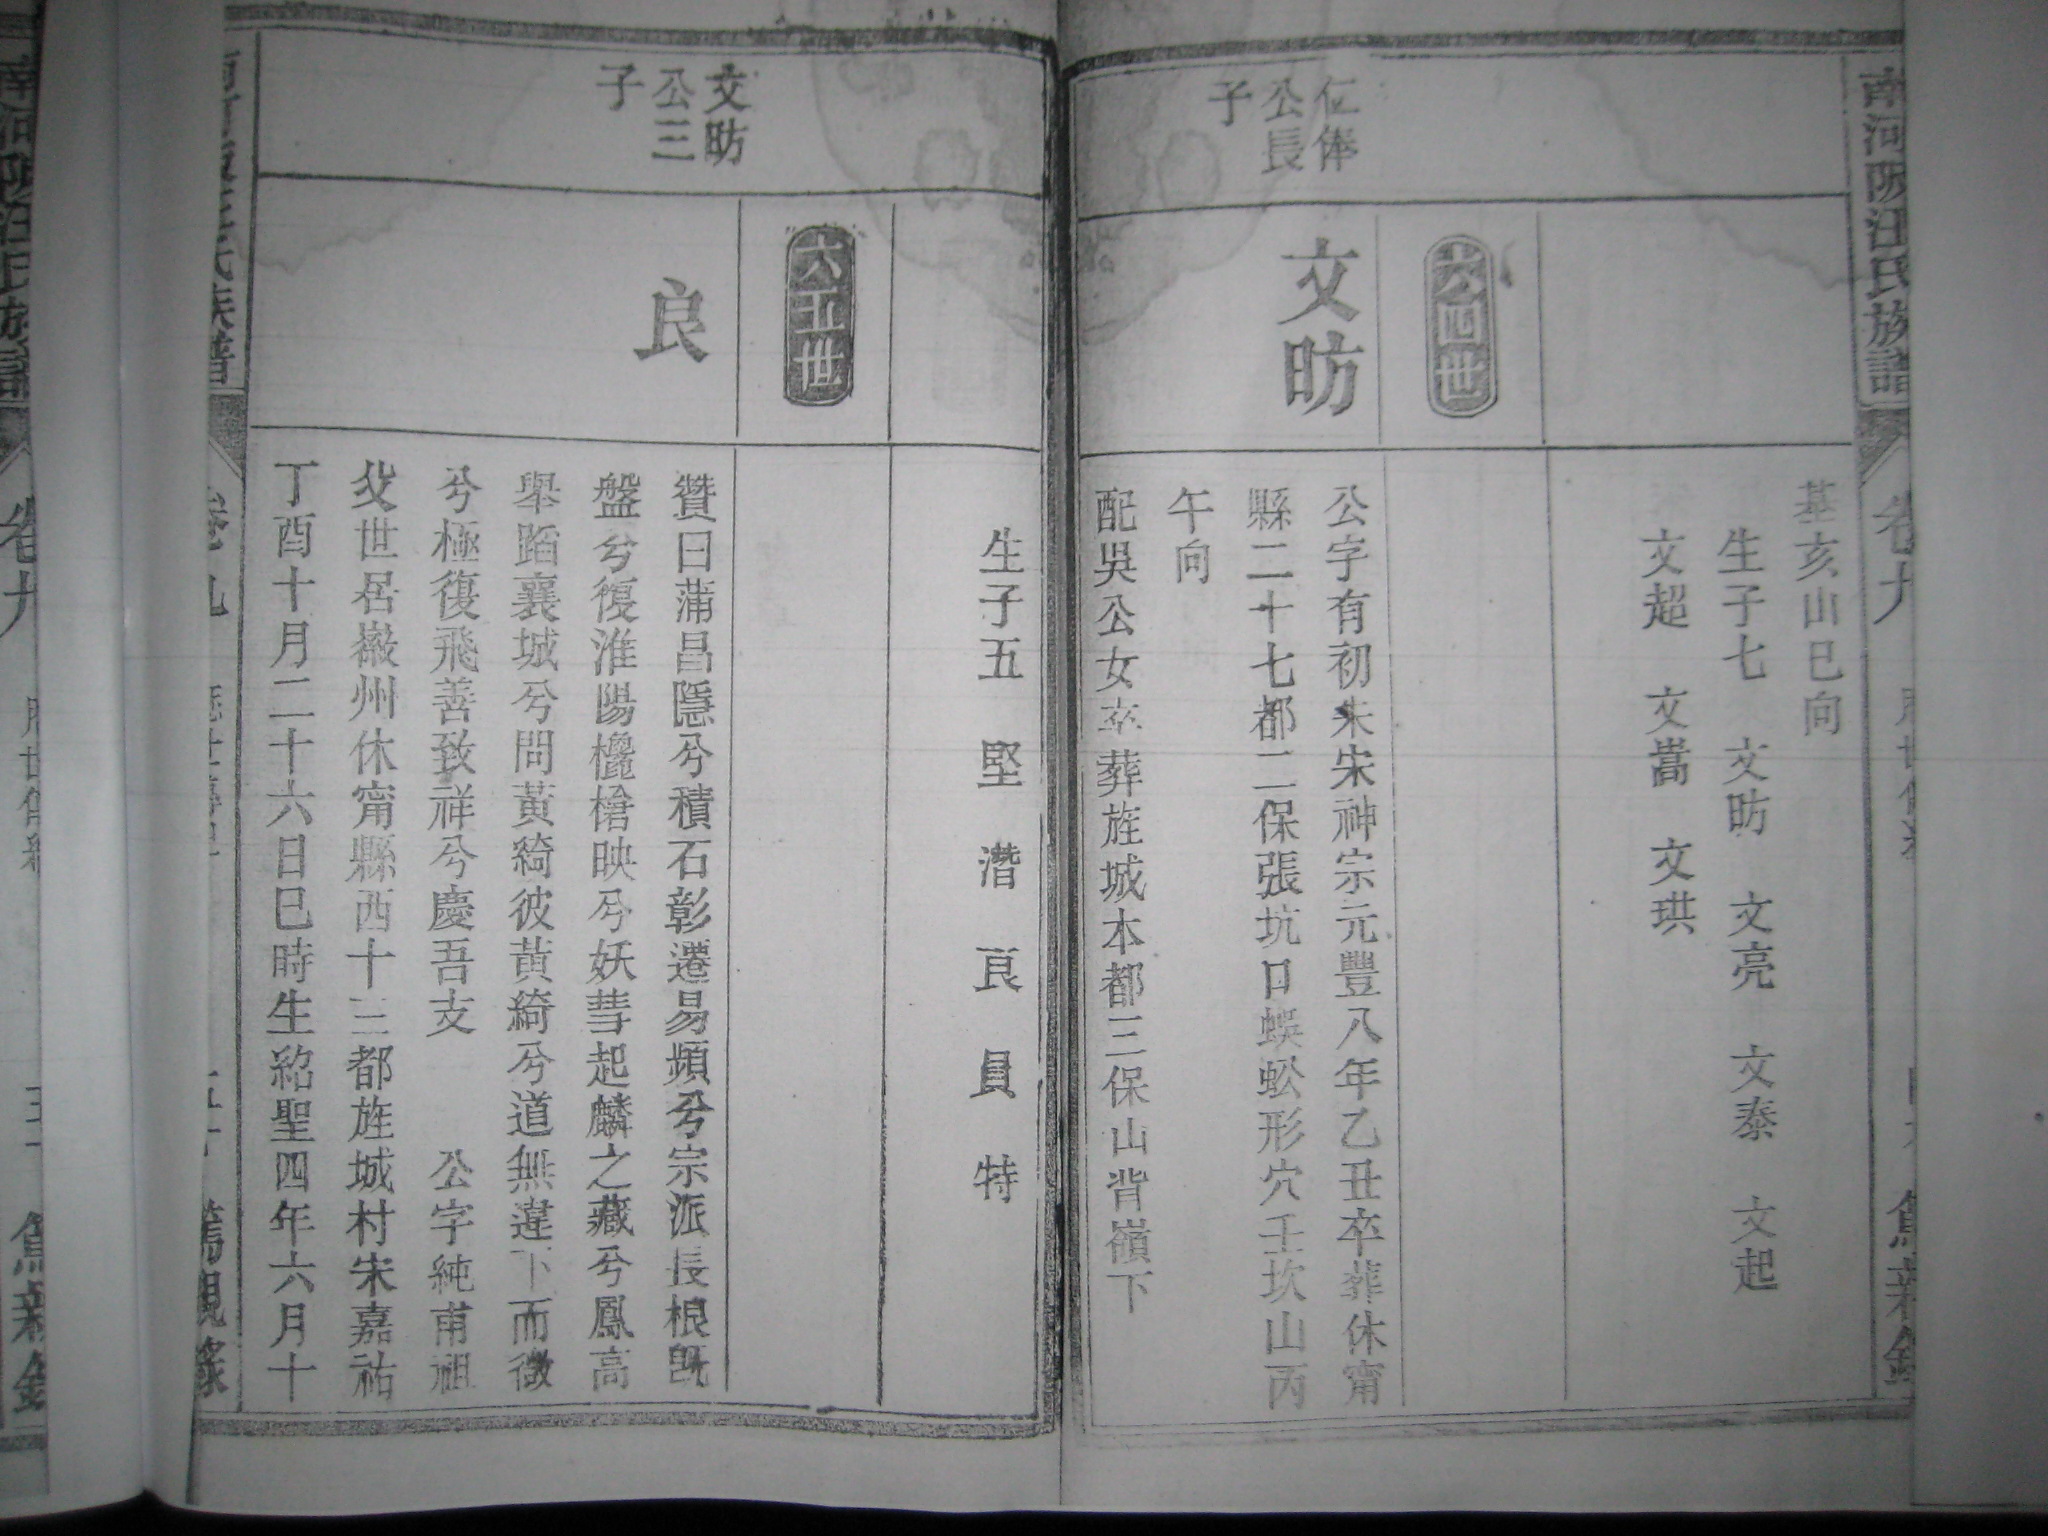 南河陂汪氏族譜
卷九
墓亥山巳向
生子七　文昉　文亮　文泰　文起
文超　文嵩　文珙
六四世
仁俸
公長
子
文昉
公字有初朱宋神宗元豐八年乙丑卒葬休甯
縣二十七都二保張坑口蜈蚣形穴壬坎山丙
午向
配吳公女卒葬旌城本都三保山背嶺下
生子五　堅　潛　良　員　特
六五世
文昉
公三
子
良
贊曰蒲昌隱兮積石彰遷易頻兮宗派長根既
盤兮復淮陽欃槍映兮妖彗起麟之藏兮鳳高
舉蹈襄城兮問黃綺彼黃綺兮道無違下而徵
兮極復飛善致祥兮慶吾支　公字純甫祖
父世居嶶州休甯縣西十三都旌城村宋嘉祐
丁酉十月二十六日巳時生紹聖四年六月十
族譜
親錄